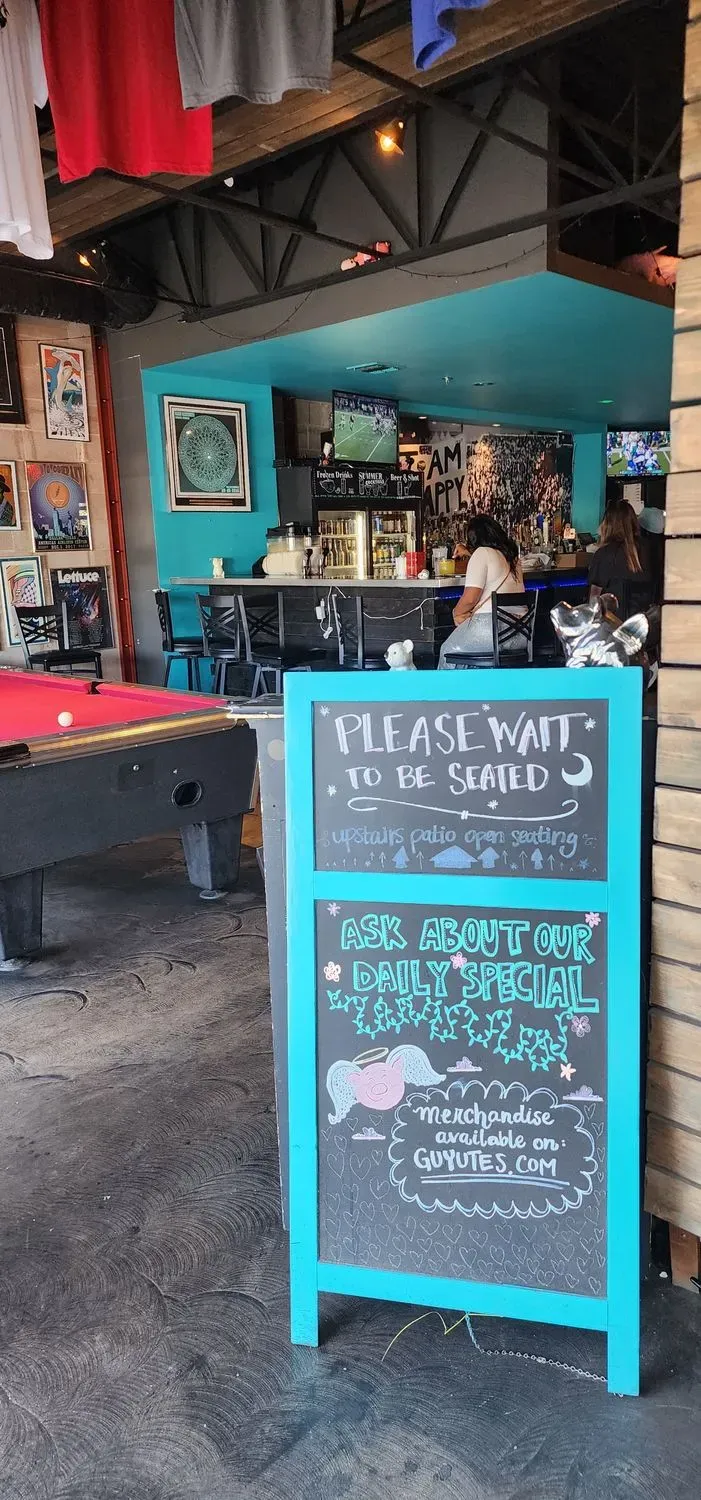 Frozen Drinks
SUMMER
Beer & Shot
I AM
HAPPY
Lettuce
PLEASE WAIT
TO BE SEATED
upstairs patio open seating
ASK ABOUT OUR
DAILY SPECIAL
Merchandise
available on:
GUYUTES.COM